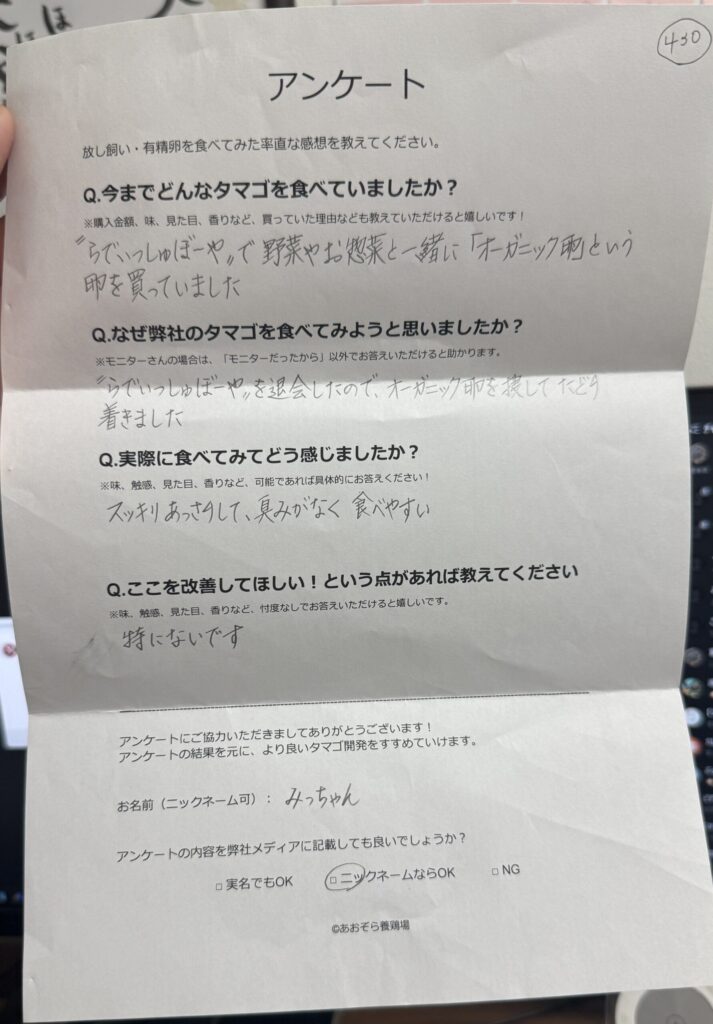 430
アンケート
放し飼い・有精卵を食べてみた率直な感想を教えてください。
Q.今までどんなタマゴを食べていましたか？
※購入金額、味、見た目、香りなど、買っていた理由なども教えていただけると嬉しいです！
〝らでぃっしゅぼーや〟で野菜やお惣菜と一緒に「オーガニック卵」という
卵を買っていました
Q.なぜ弊社のタマゴを食べてみようと思いましたか？
※モニターさんの場合は、「モニターだったから」以外でお答えいただけると助かります。
〝らでぃっしゅぼーや〟を退会したので、オーガニック卵を探してたどり
着きました
Q.実際に食べてみてどう感じましたか？
※味、触感、見た目、香りなど、可能であれば具体的にお答えください！
スッキリあっさりして、臭みがなく 食べやすい
Q.ここを改善してほしい！という点があれば教えてください
※味、触感、見た目、香りなど、忖度なしでお答えいただけると嬉しいです。
特にないです
アンケートにご協力いただきましてありがとうございます！
アンケートの結果を元に、より良いタマゴ開発をすすめていけます。
お名前（ニックネーム可）： みっちゃん
アンケートの内容を弊社メディアに記載しても良いでしょうか？
□ 実名でもOK □ ニックネームならOK □ NG
©あおぞら養鶏場